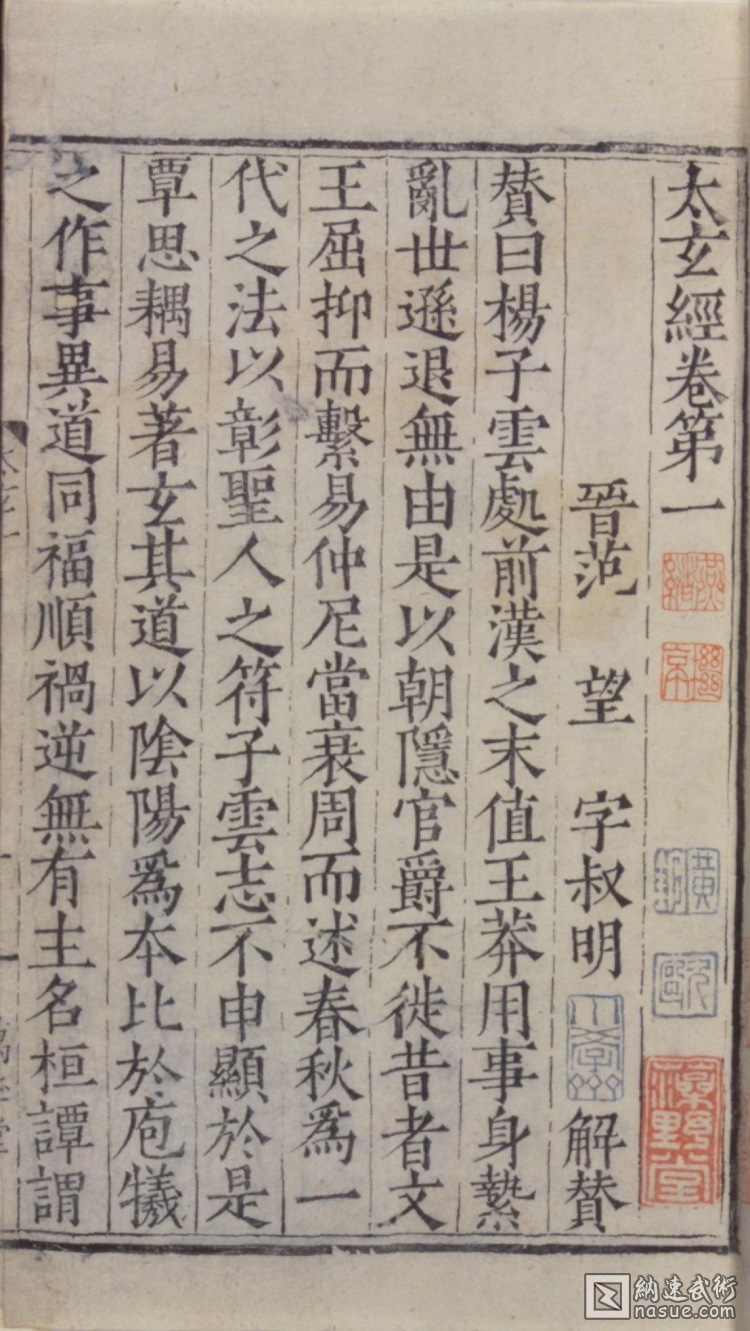 太玄經卷第一
晉范望字叔明解贊
賛曰楊子雲處前漢之末值王莽用事身縶
亂世遜退無由是以朝隱官爵不徙昔者文
王屈抑而繫易仲尼當衰周而述春秋爲一
代之法以彰聖人之符子雲志不申顯於是
覃思耦易著玄其道以陰陽爲本比於庖犧
之作事異道同福順禍逆無有主名桓譚謂
納速武術
nasue.com